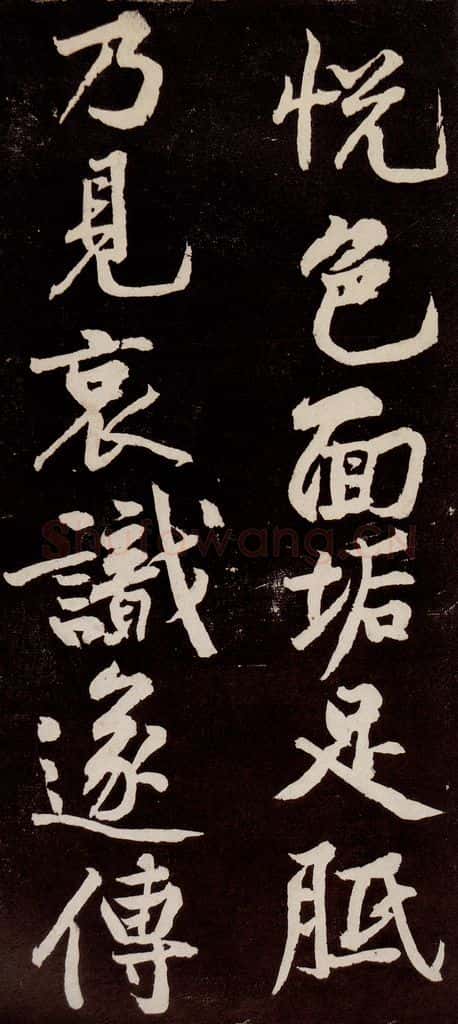 悦色面垢足胝
乃見哀識遂傳
Shufawang.CN